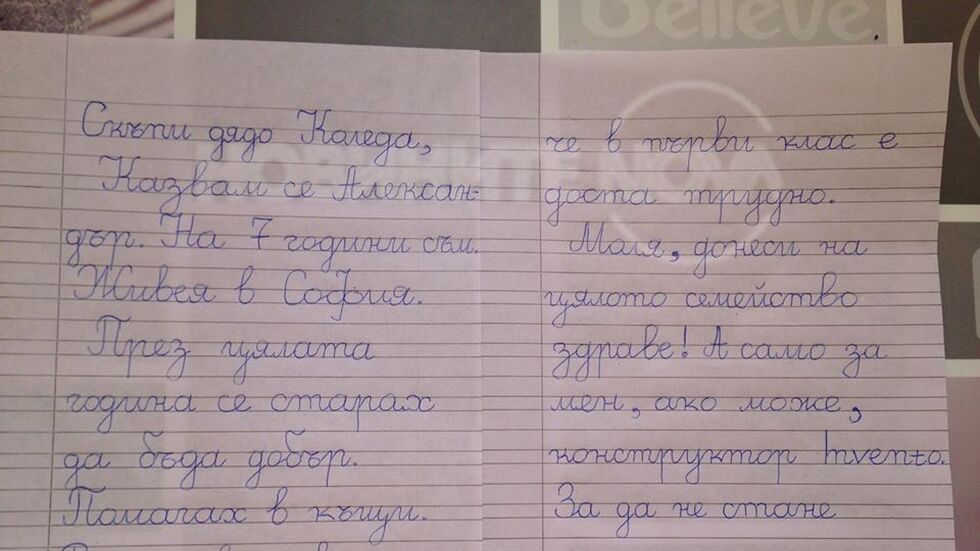 believe
Скъпи дядо Коледа,
Казвам се Алексан-
дър. На 7 години съм.
Живея в София.
През цялата
година се старах
да бъда добър.
Помагах в къщи.
че в първи клас е
доста трудно.
Моля, донеси на
цялото семейство
здраве! А само за
мен, ако може,
конструктор Invento.
За да не стане